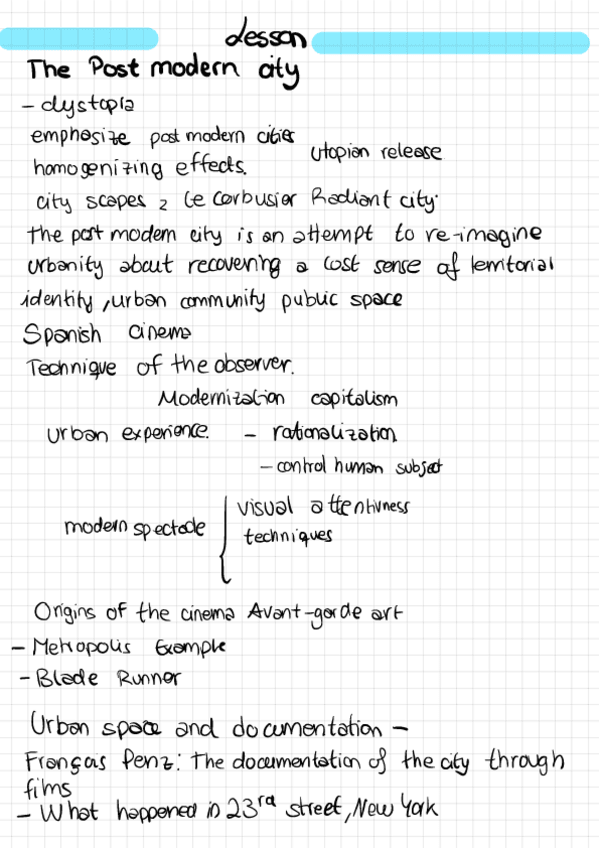 lesson
The Post modern city
- dystopia
emphasize post modern cities
utopian release
homogenizing effects.
city scapes 2 Le Corbusier Radiant city.
the post modern city is an attempt to re-imagine
urbanity about recovering a lost sense of territorial
identity, urban community public space
Spanish cinema
Technique of the observer.
Modernization capitalism
Urban experience. - rationalization
- control human subject
modern spectacle { visual attentivness
techniques
Origins of the cinema Avant-garde art
- Metropolis Example
- Blade Runner
Urban space and documentation -
FrançQis Penz: The documentation of the city through
films
- What happened in 23rd street, New York